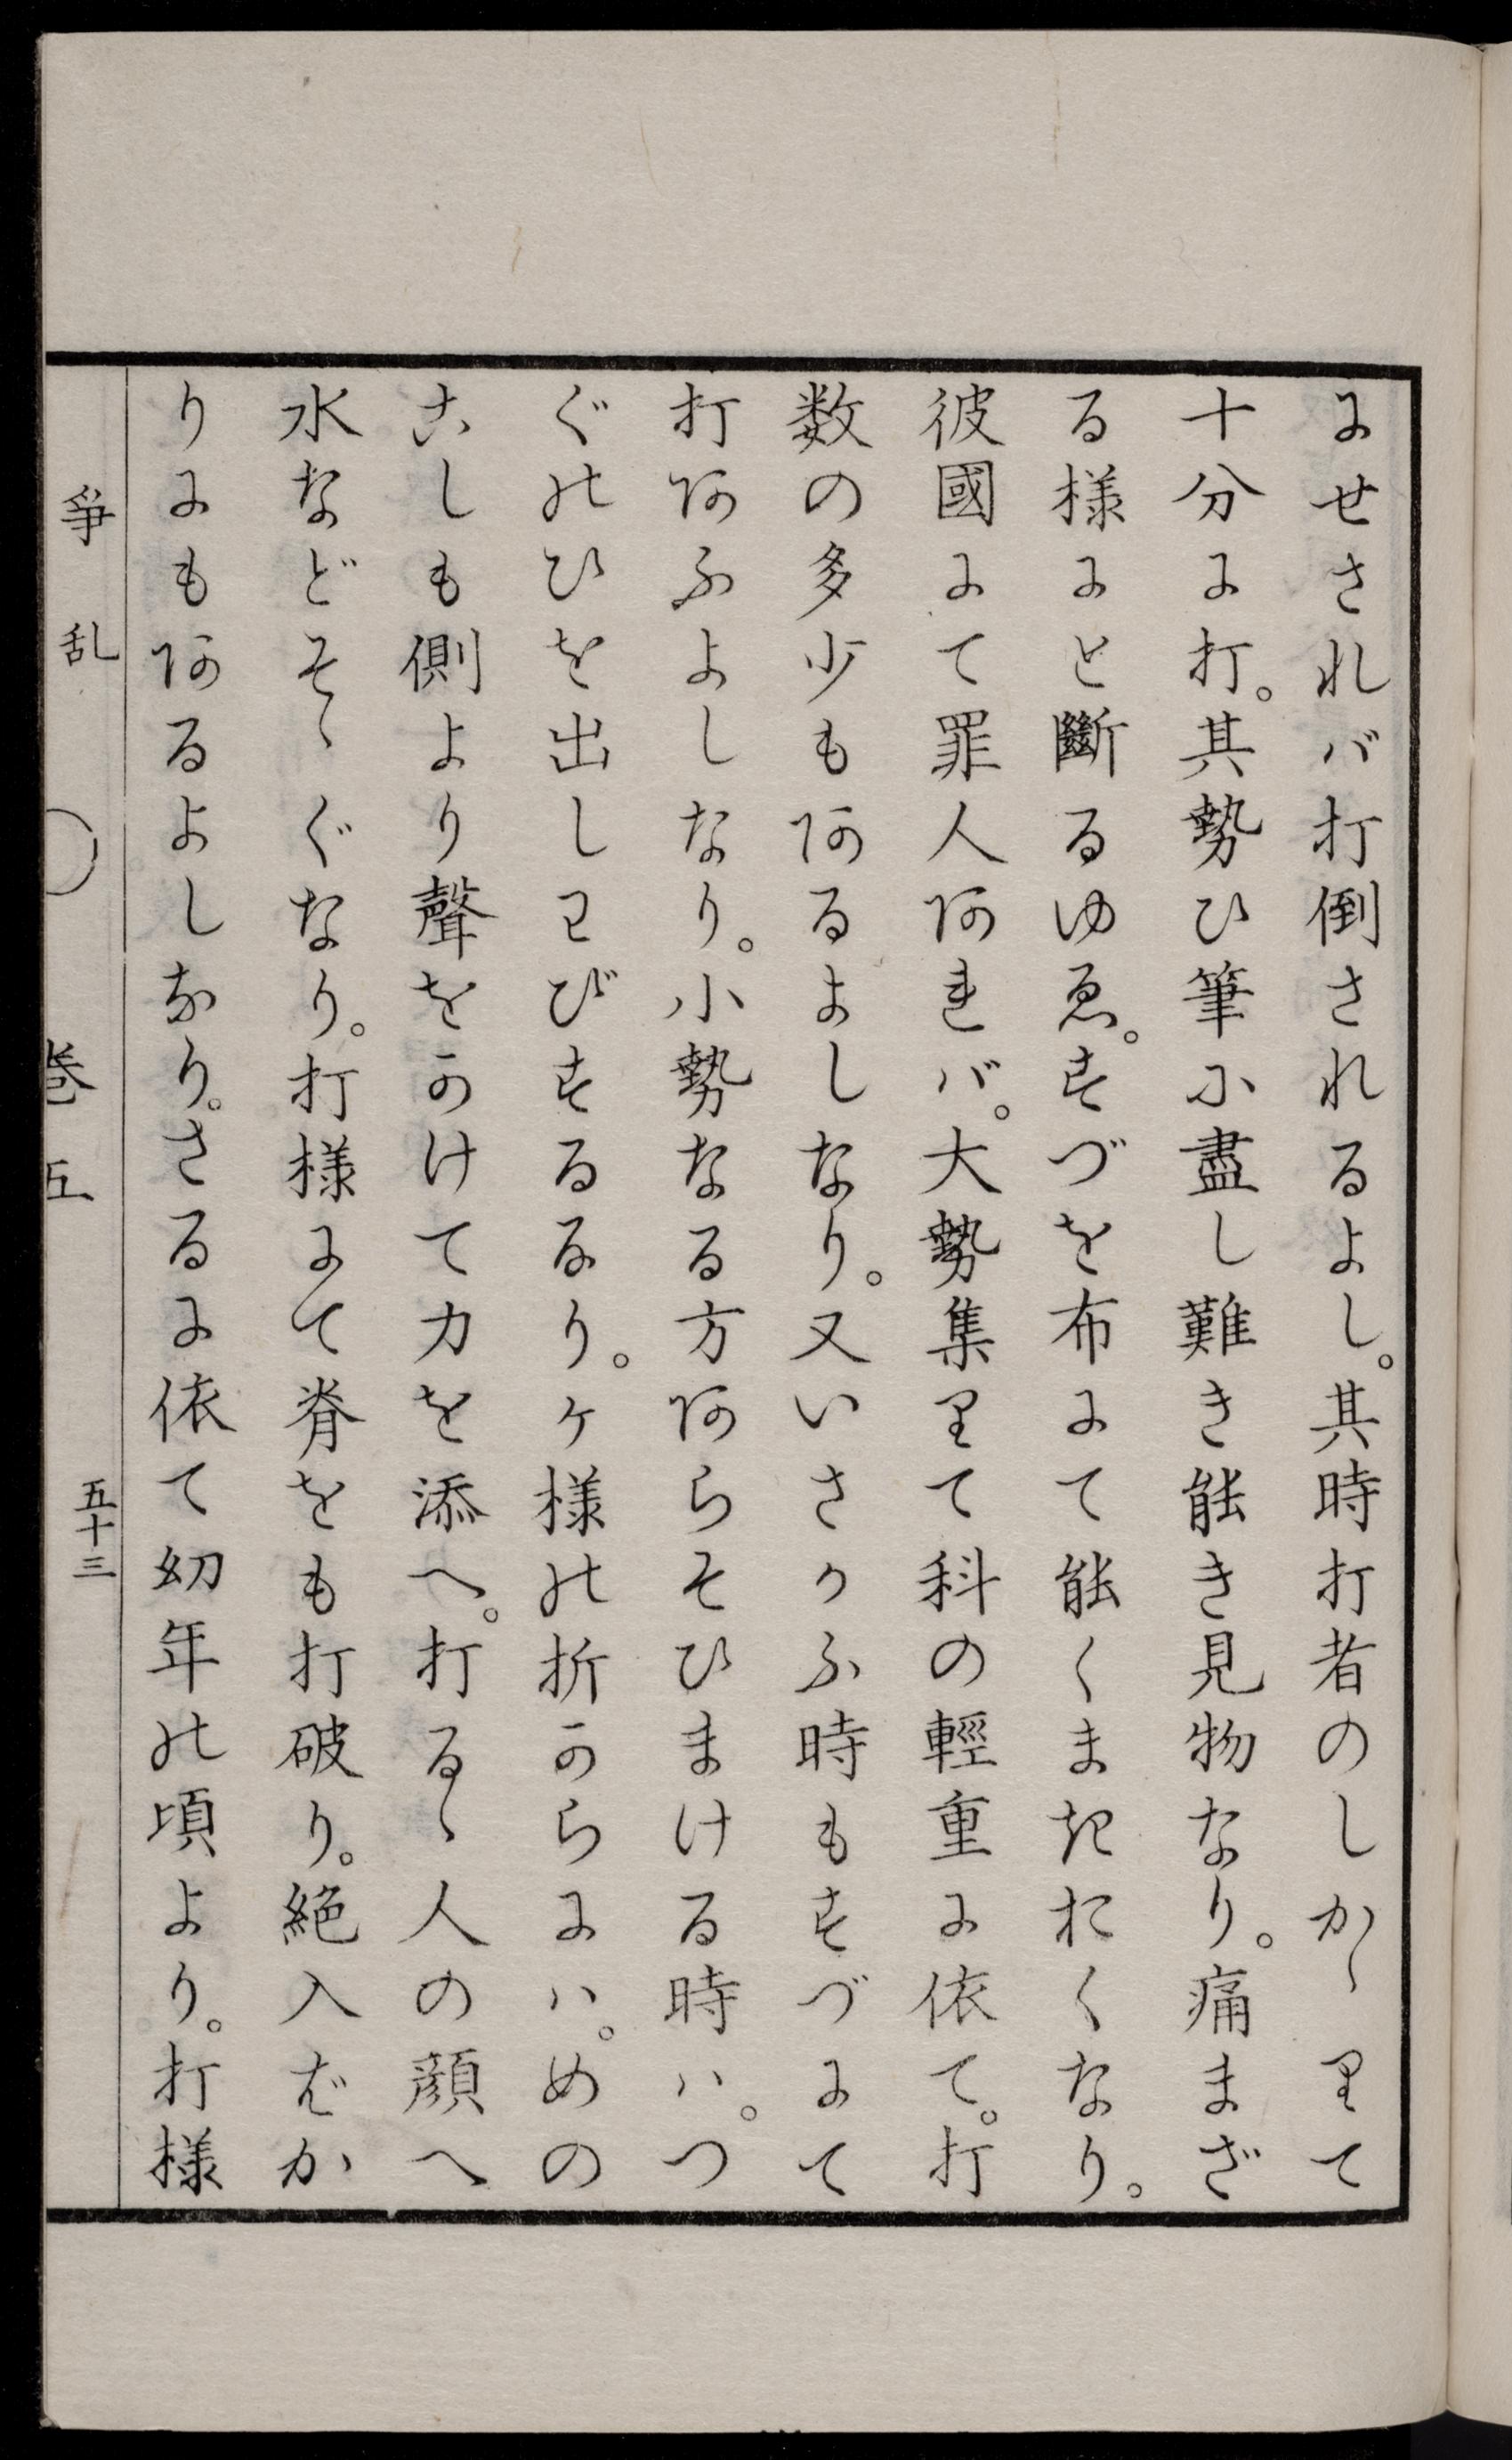 にせされバ打倒されるよし。其時打者のしかゝりて
十分に打。其勢ひ筆に盡し難き能き見物なり。痛まざ
る様にと斷るゆゑ。まづを布にて能くまきおくなり。
彼國にて罪人あれバ。大勢集りて科の輕重に依て。打
数の多少もあるよしなり。又いさかふ時もまづにて
打あふよしなり。小勢なる方あらそひまける時ハ。つ
ぐのひを出しわびするなり。ケ様の折からにハ。めの
こしも側より聲をかけて力を添へ。打るゝ人の顔へ
水などそゝぐなり。打様にて脊をも打破り。絶入ばか
りにもあるよしなり。さるに依て幼年の頃より。打様
爭乱 巻五 五十三